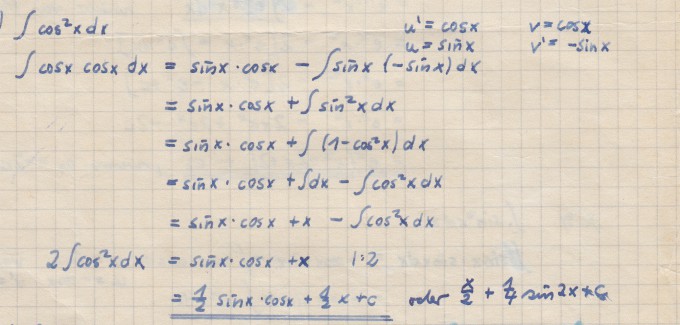 ) ∫ cos²x dx u' = cosx v = cosx
u = sinx v' = -sinx
∫ cosx cosx dx = sinx · cosx - ∫ sinx (-sinx) dx
= sinx · cosx + ∫ sin²x dx
= sinx · cosx + ∫ (1-cos²x) dx
= sinx · cosx + ∫dx - ∫ cos²x dx
= sinx · cosx + x - ∫cos²x dx
2 ∫ cos²x dx = sinx · cosx + x 1:2
= 1/2 sinx · cosx + 1/2 x + c oder x/2 + 1/4 sin 2x + c